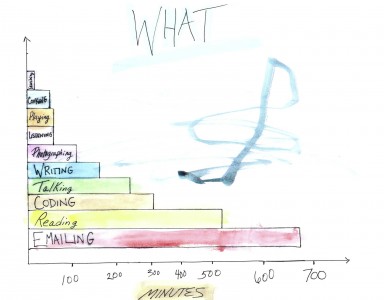 WHAT
Playing
Photographing
WRITING
Talking
CODING
Reading
EMAILING
100 200 300 400 500 600 700
MINUTES